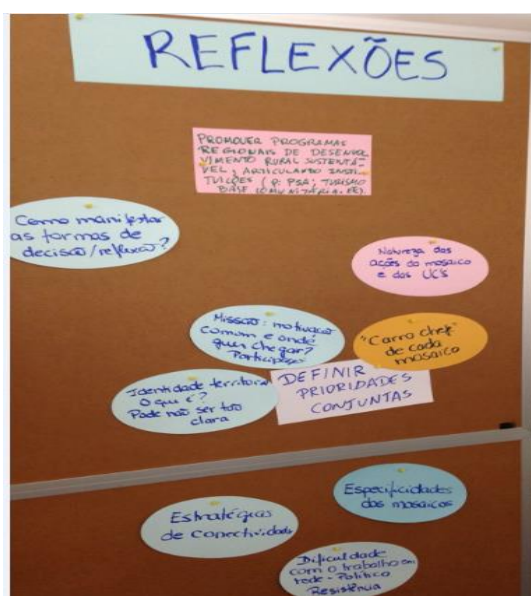 REFLEXÕES
PROMOVER PROGRAMAS
REGIONAIS DE DESENVOL
VIMENTO RURAL SUSTENTÁ-
VEL, ARTICULANDO INSTI-
TUIÇÕES (P. PSA; TURISMO
BASE COMUNITÁRIA
Como manifestar
as formas de
decisão/reflexão?
Natureza das
ações do mosaico
e das UC's
Missão: motivação
comum e onde
quer chegar?
Participação
"Carro chefe"
de cada
mosaico
Identidade territorial
O que é?
Pode não ser tão
clara
DEFINIR
PRIORIDADES
CONJUNTAS
Especificidades
dos mosaicos
Estratégias
de conectividade
Dificuldade
com o trabalho em
rede - Político
Resistência